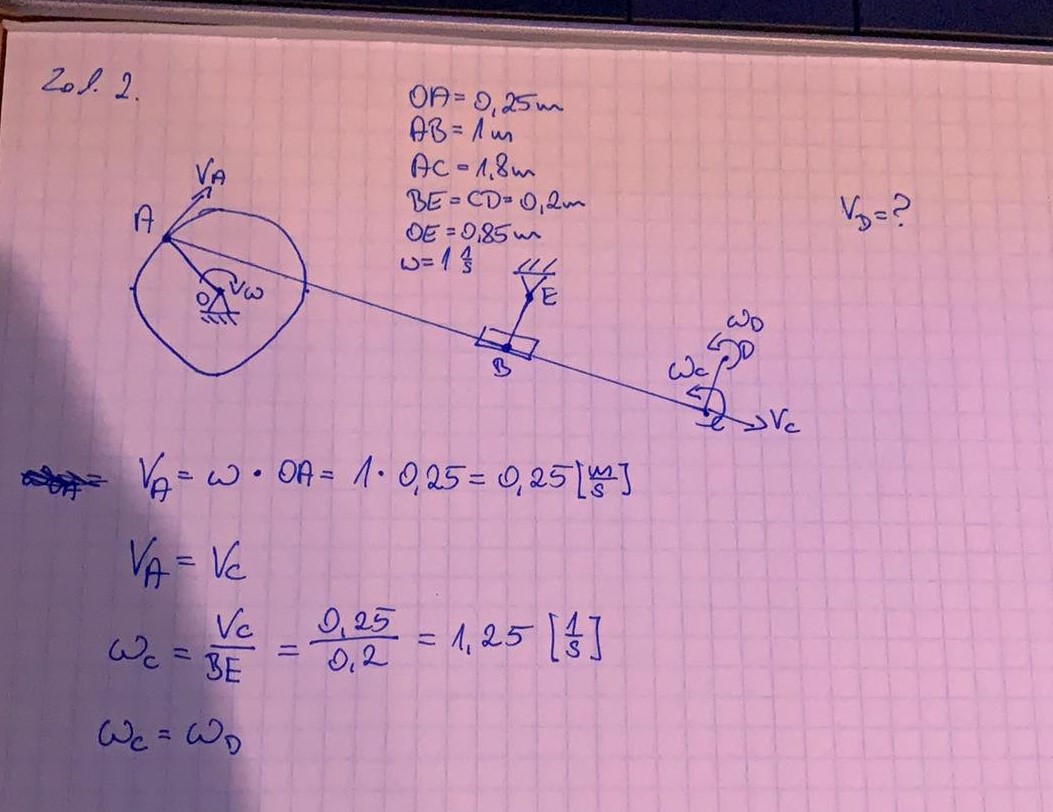 Zad. 2.
OA = 0,25m
AB = 1m
AC = 1,8m
BE = CD = 0,2m
OE = 0,85m
ω = 1 1/s
V_D = ?
V_A
A
O
ω
E
B
ω_D
D
ω_C
C
V_C
V_A = ω · OA = 1 · 0,25 = 0,25 [m/s]
V_A = V_C
ω_C = V_C/BE = 0,25/0,2 = 1,25 [1/s]
ω_C = ω_D